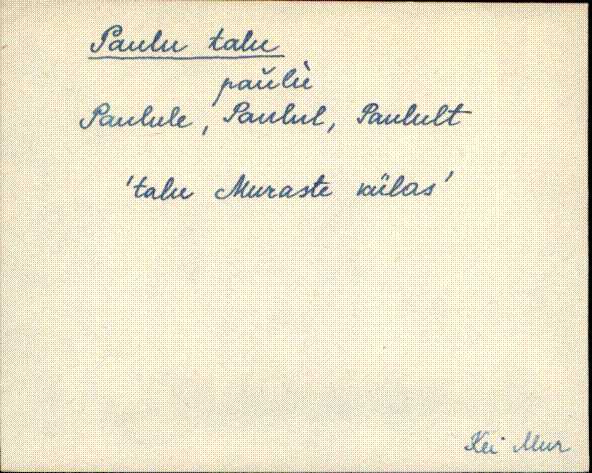 Paulu talu
pau̯lù
Paulule, Paulul, Paulult
'talu Muraste külas'
Kei Mur